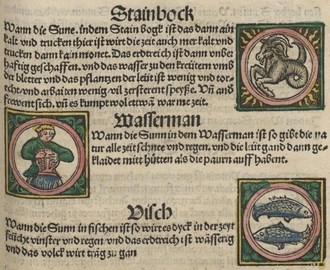 Stainbock
Wann die Sunn. indem Stain bogk ist das dann ist
kalt vnd trucken thier ist wirt die zeit auch mer kal vnd
trucken dann kain monet. Das erdtreich ist dann vnbe
hafftig geschaffen. vnd das wasser zu den kreütern vnd
der bletter vnd das pflantzen der leüt ist wenig vnd tor
echt. vnd arbaiten wenig vil zersterent speyse. Vn̄ and
frewent sich. vn̄ es kumpt wol etwan̄ war me zeit.
Wasserman
Wann die Sunn in dem Wasserman ist so gibt die na
tur alle zeit schnee vnd regen. vnd die lüt gand dann ge
klaidet mitt hütten als die paurn auff habent.
Visch
Wann die Sunn in fischen ist so wirt es dyck in der zeyt
feücht vinster vnd regen. vnd das erdtreich ist wässerig
vnd das volck wirt träg zu gan